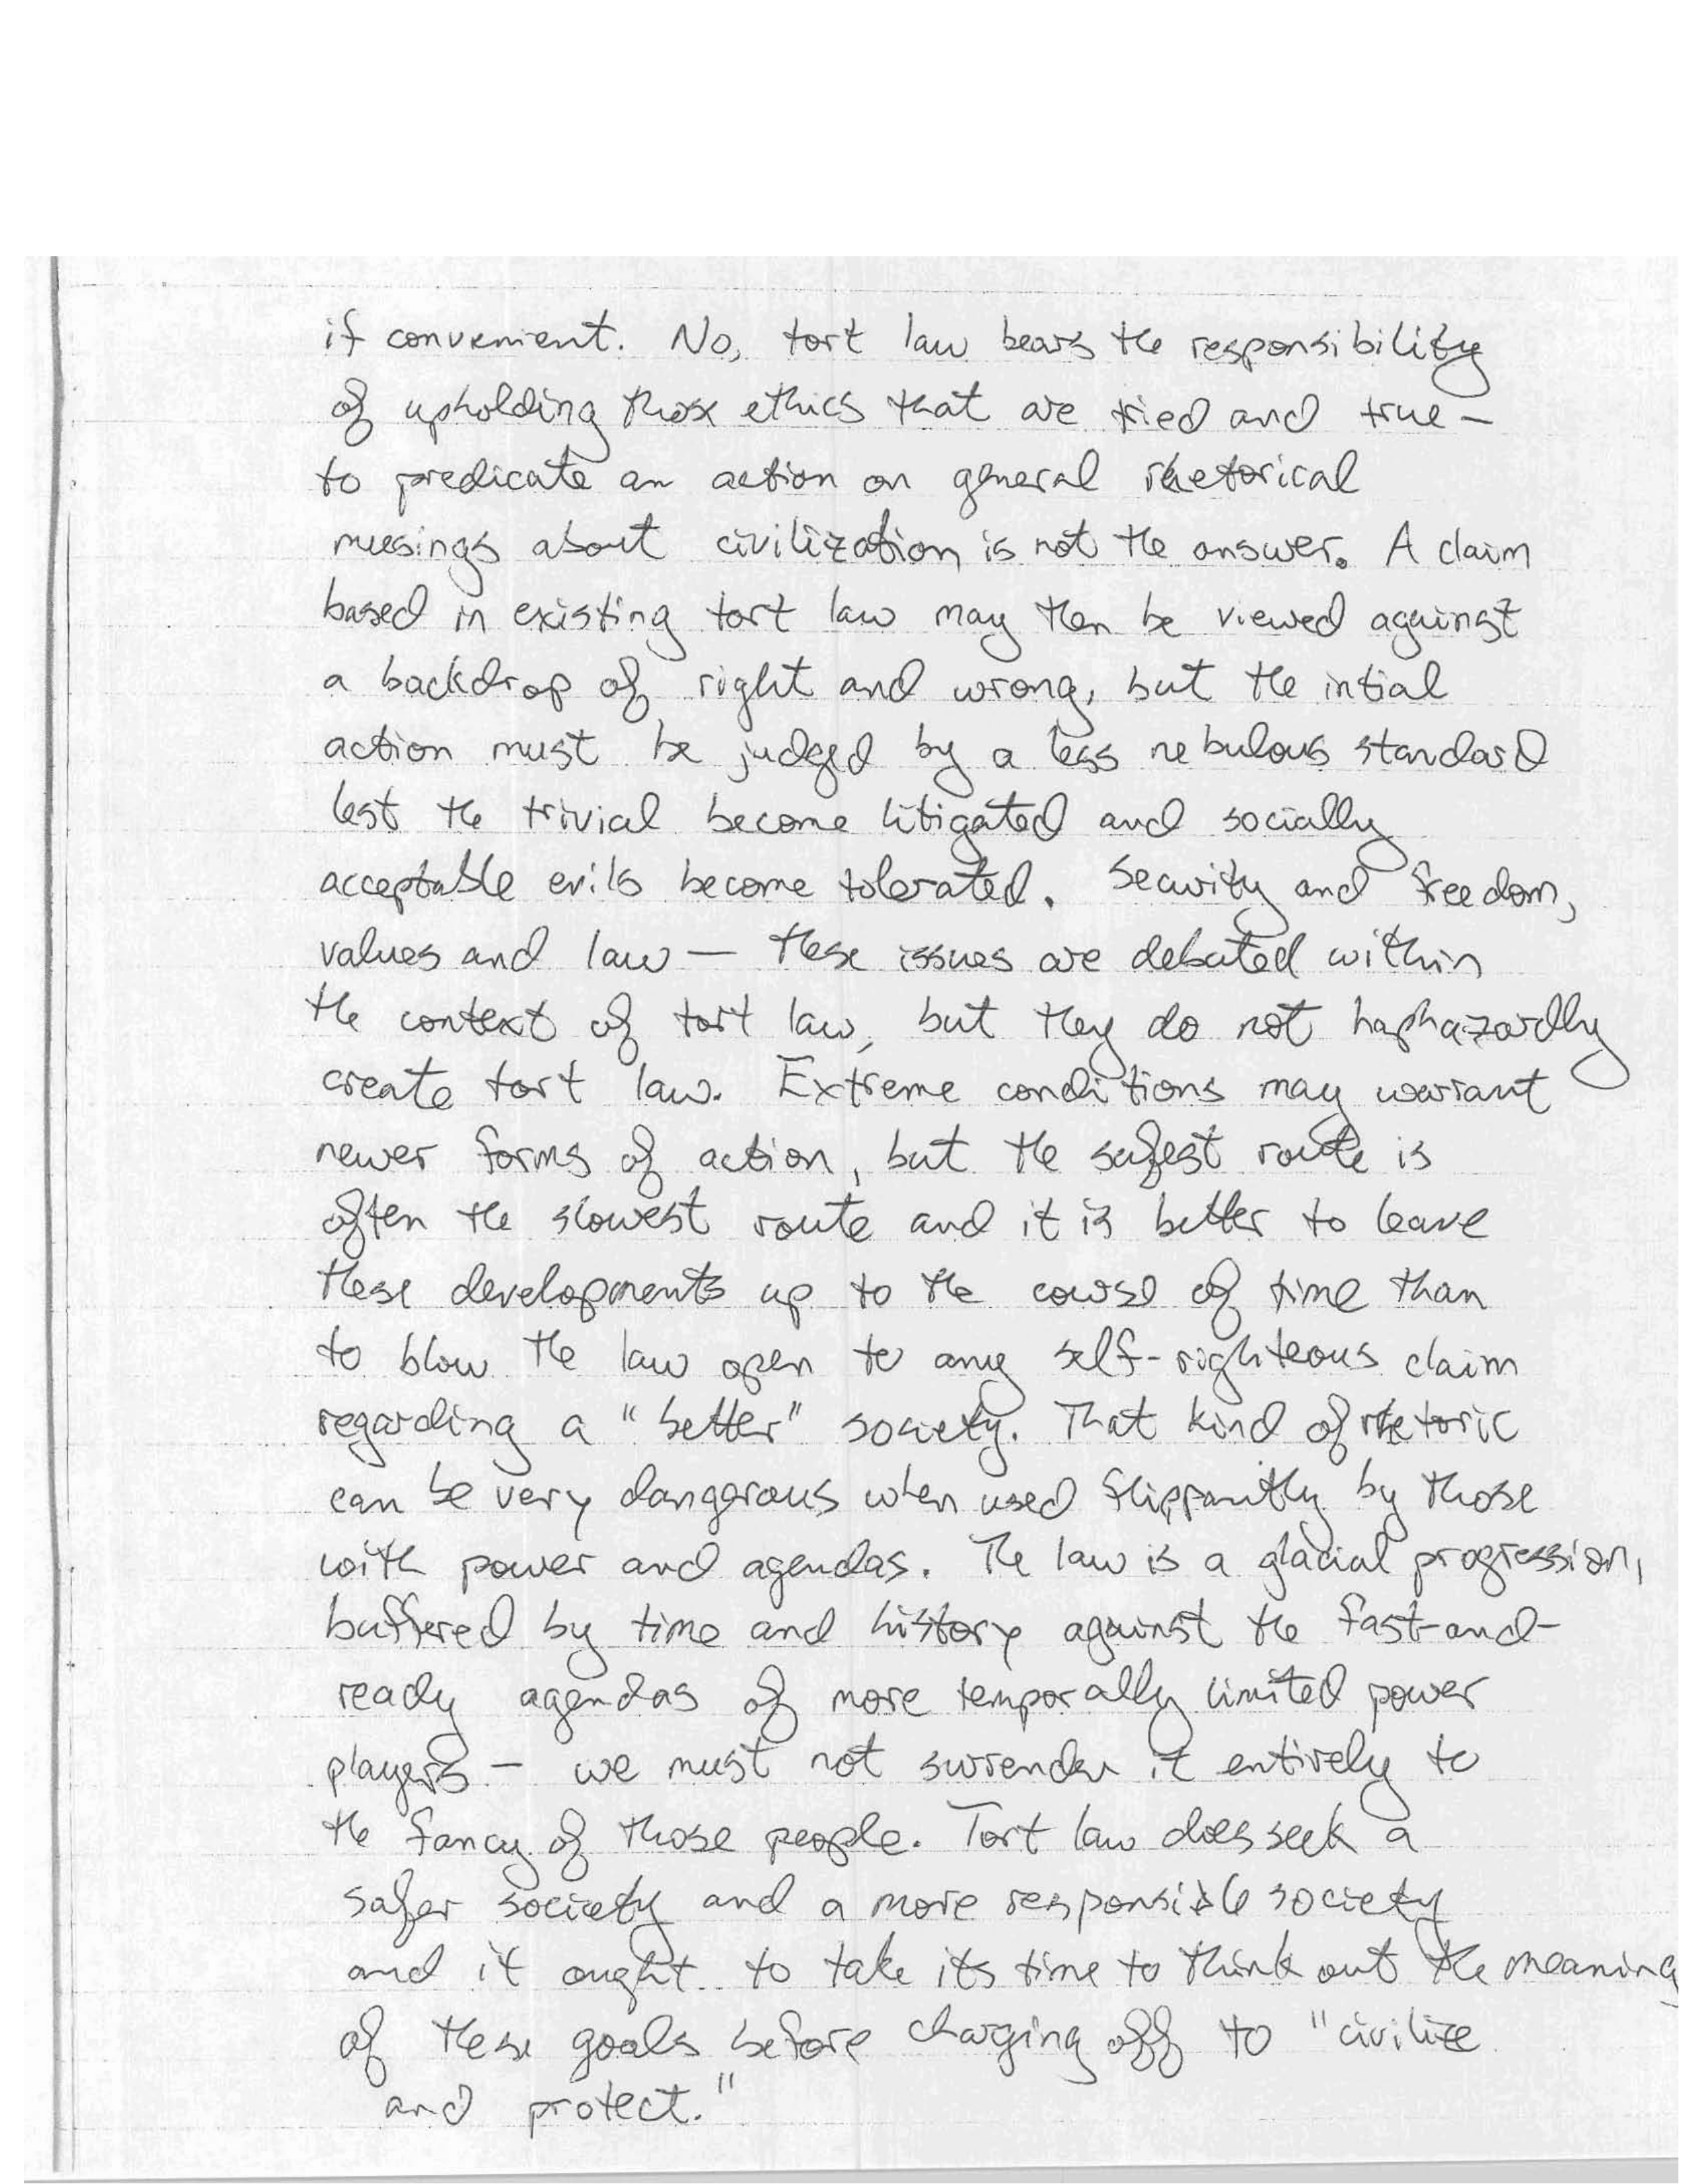 if convenient. No, tort law bears the responsibility
of upholding those ethics that are tried and true—
to predicate an action on general rhetorical
musings about civilization is not the answer. A claim
based in existing tort law may then be viewed against
a backdrop of right and wrong, but the intial
action must be judged by a less nebulous standard
lest the trivial become litigated and socially
acceptable evils become tolerated. Security and freedom,
values and law — these issues are debated within
the context of tort law, but they do not haphazardly
create tort law. Extreme conditions may warrant
newer forms of action, but the safest route is
often the slowest route and it is better to leave
these developments up to the course of time than
to blow the law open to any self-righteous claim
regarding a "better" society. That kind of rhetoric
can be very dangerous when used flippantly by those
with power and agendas. The law is a glacial progression,
buffered by time and history against the fast-and-
ready agendas of more temporally limited power
players — we must not surrender it entirely to
the fancy of those people. Tort law does seek a
safer society and a more responsible society
and it ought to take its time to think out the meaning
of these goals before charging off to "civilize
and protect."